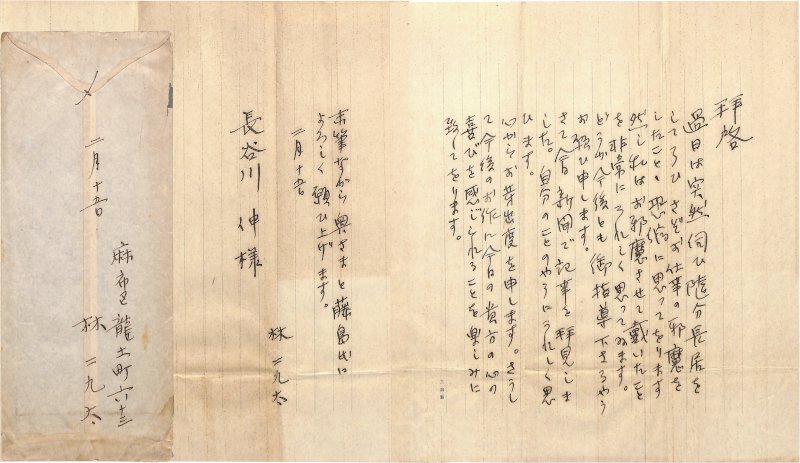 拝啓
過日は突然伺ひ随分長居を
してしまひ さぞお仕事の邪魔を
したことゝ恐縮に思ってをります
然し私はお邪魔させて戴いたこと
を非常にうれしく思ってゐます。
どうか今後とも御指導下さるやう
お願ひ申します。
さて今日新聞で記事を拝見しま
した。自分のことのやうにうれしく思
ひます。
心からお芽出度を申します。さうし
て今後のお作に今日の貴方の心の
喜びを感じられることを楽しみに
致してをります。
末筆ながら奥さまと藤島氏に
よろしく願ひ上げます。
二月十五日
林 二九太
長谷川 伸様
〆
二月十五日
麻布区龍土町六十三
林 二九太